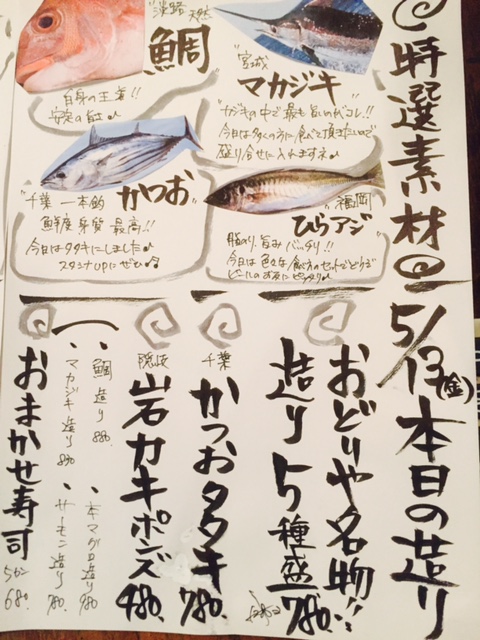 特選素材
5/13(金)本日の造り
宮城
マカジキ
カジキの中で最も旨いのがコレ!!
今日は多くの方に食べて頂きたいので
盛り合せに入れますネ♪
淡路 天然
鯛
白身の王者!!
安定の旨さ♪
福岡
ひらアジ
脂のり、旨みバッチリ!!
千葉 一本釣
かつお
鮮度 身質 最高!!
今日はタタキにしました♪
スタミナupにぜひ♪
おどりや名物!!
造り5種盛 780.
千葉
かつおタタキ 780.
隠岐
岩カキポンズ 480.
・鯛造り 880.
・本マグロ造り 980
・マカジキ造り 890
・サーモン造り 780.
おまかせ寿司 5カン 680.